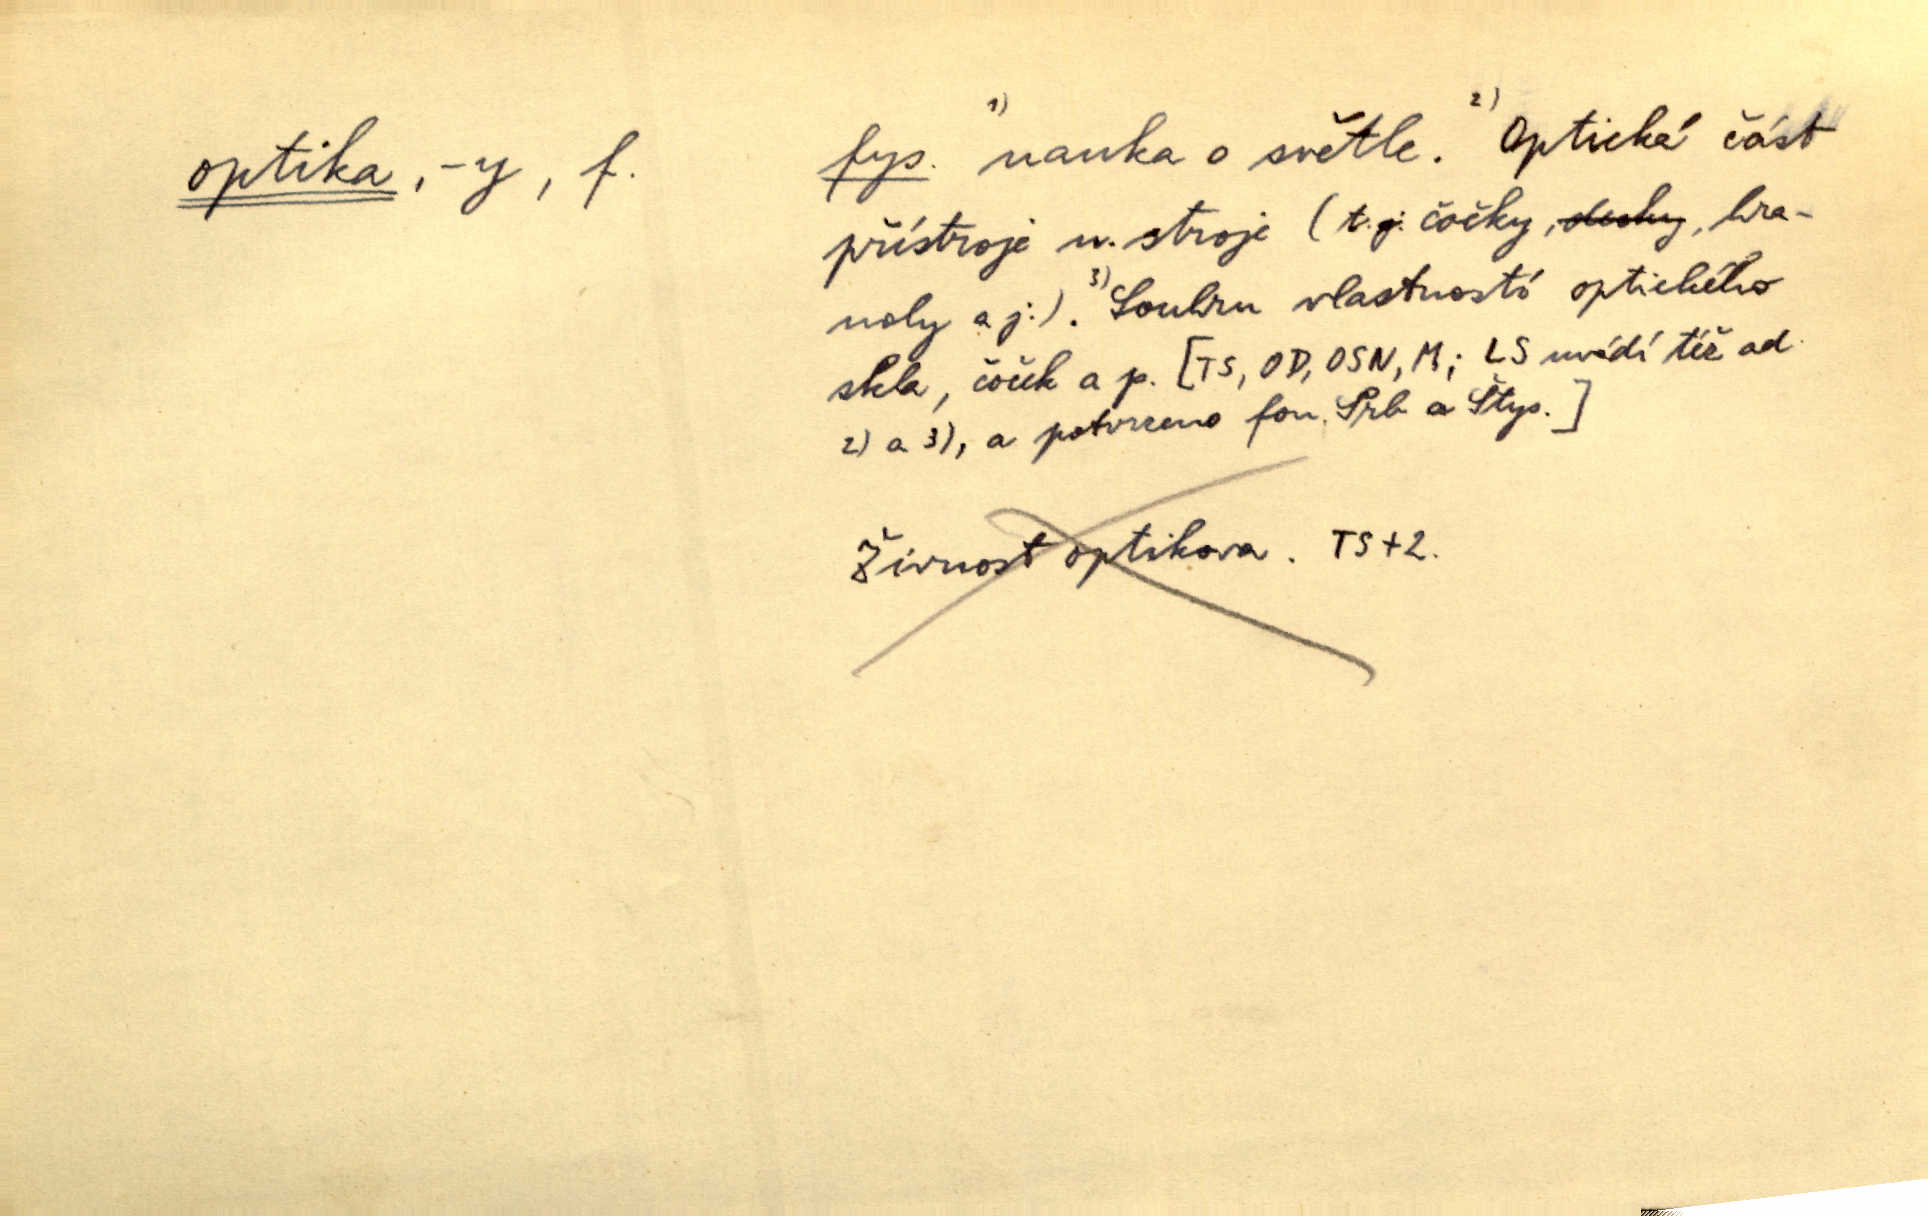 optika, -y, f.
fys. 1) nauka o světle. 2) Optická část
přístroje n. stroje (t.j. čočky, desky, hra-
noly a j.). 3) Souhrn vlastností optického
skla, čoček a p. [TS, OD, OSN, M; LS uvádí též ad
2) a 3), a potvrzeno fon. Srb a Štys.]
Živnost optikova. TS+2.